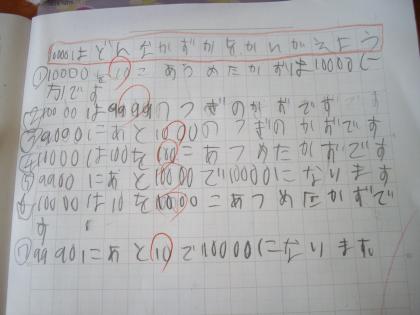 10000はどんなかずかをかんがえよう
①10000を10こあつめたかずは10000に
なです
②10000は9999のつぎのかずです
③9000にあと1000のつぎのかずです
④10000は100を100こあつめたかずです
⑤9900にあと10000で10000になります
⑥10000は10を1000こあつめたかずで
す
⑦9990にあと10で10000になります